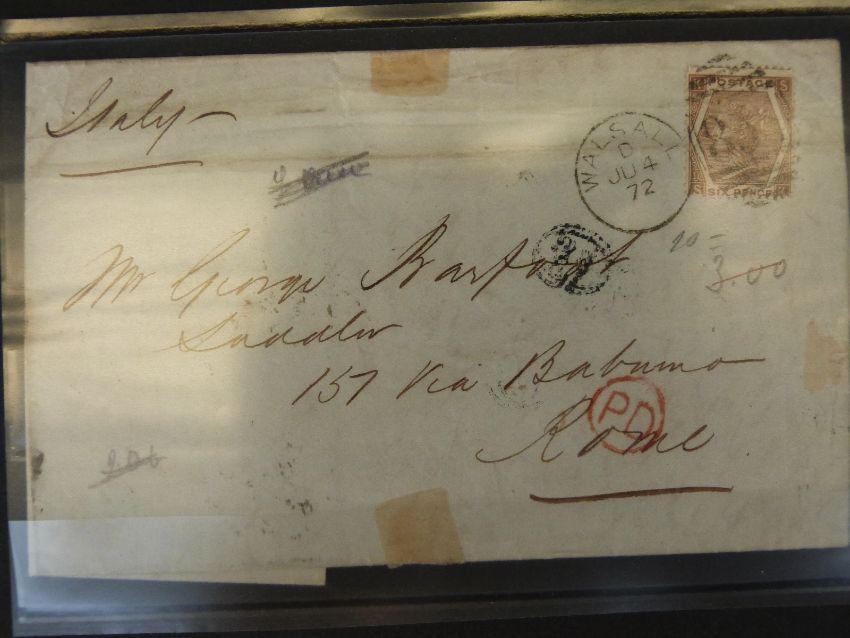 Italy
POSTAGE
K S
S K
SIX PENCE
WALSALL
D
JU 4
72
Mr George Barfoot
Saddler
3.00
157 Via Babuino
PD
Rome